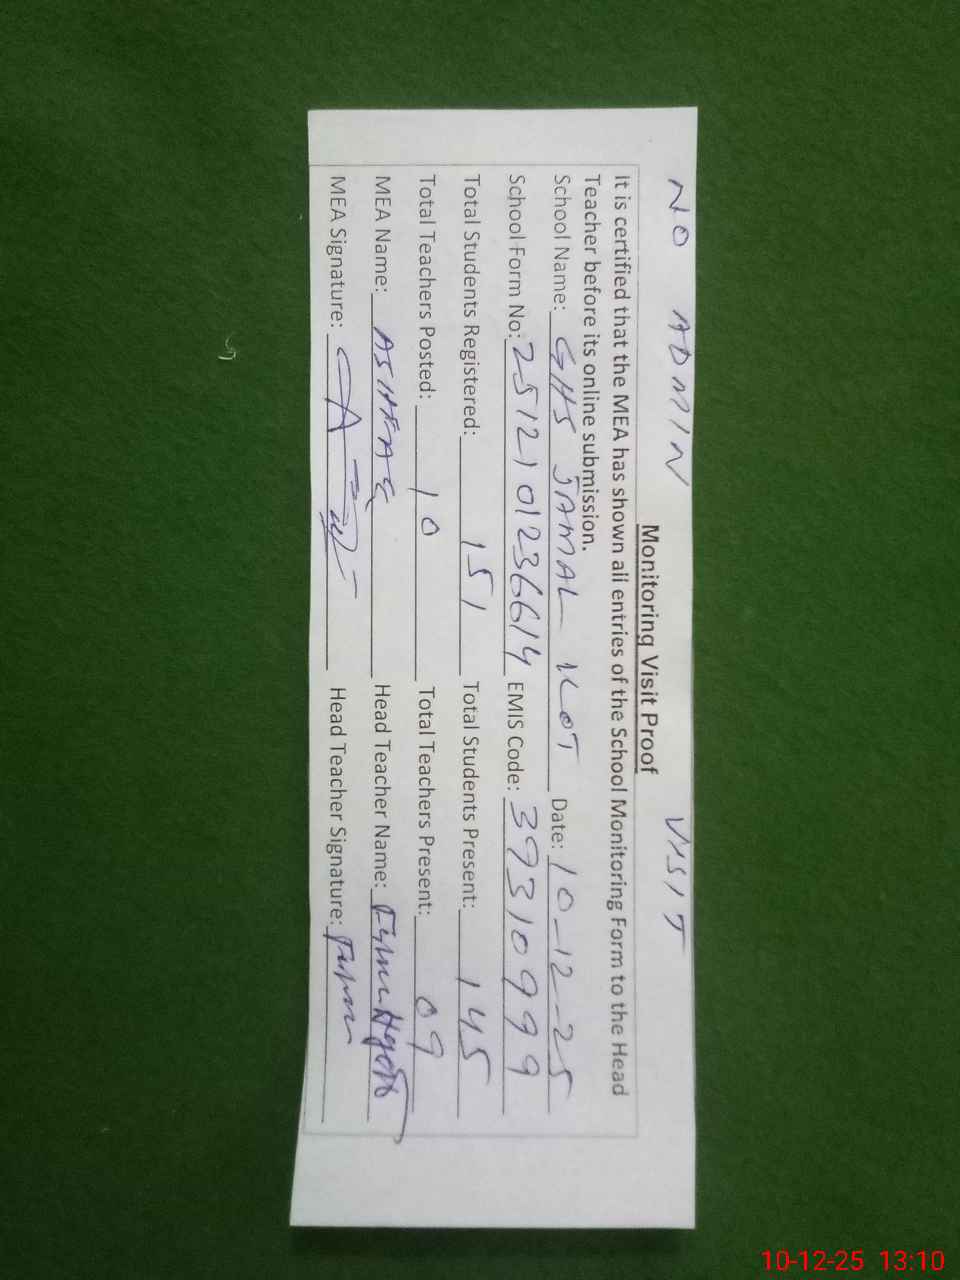 NO ADMIN VISIT
Monitoring Visit Proof
It is certified that the MEA has shown all entries of the School Monitoring Form to the Head
Teacher before its online submission.
School Name: GHS JAMAL KOT Date: 10-12-25
School Form No: 2512101236614 EMIS Code: 39310999
Total Students Registered: 151 Total Students Present: 145
Total Teachers Posted: 10 Total Teachers Present: 09
MEA Name: ASHFAQ Head Teacher Name:
MEA Signature: Head Teacher Signature:
10-12-25 13:10